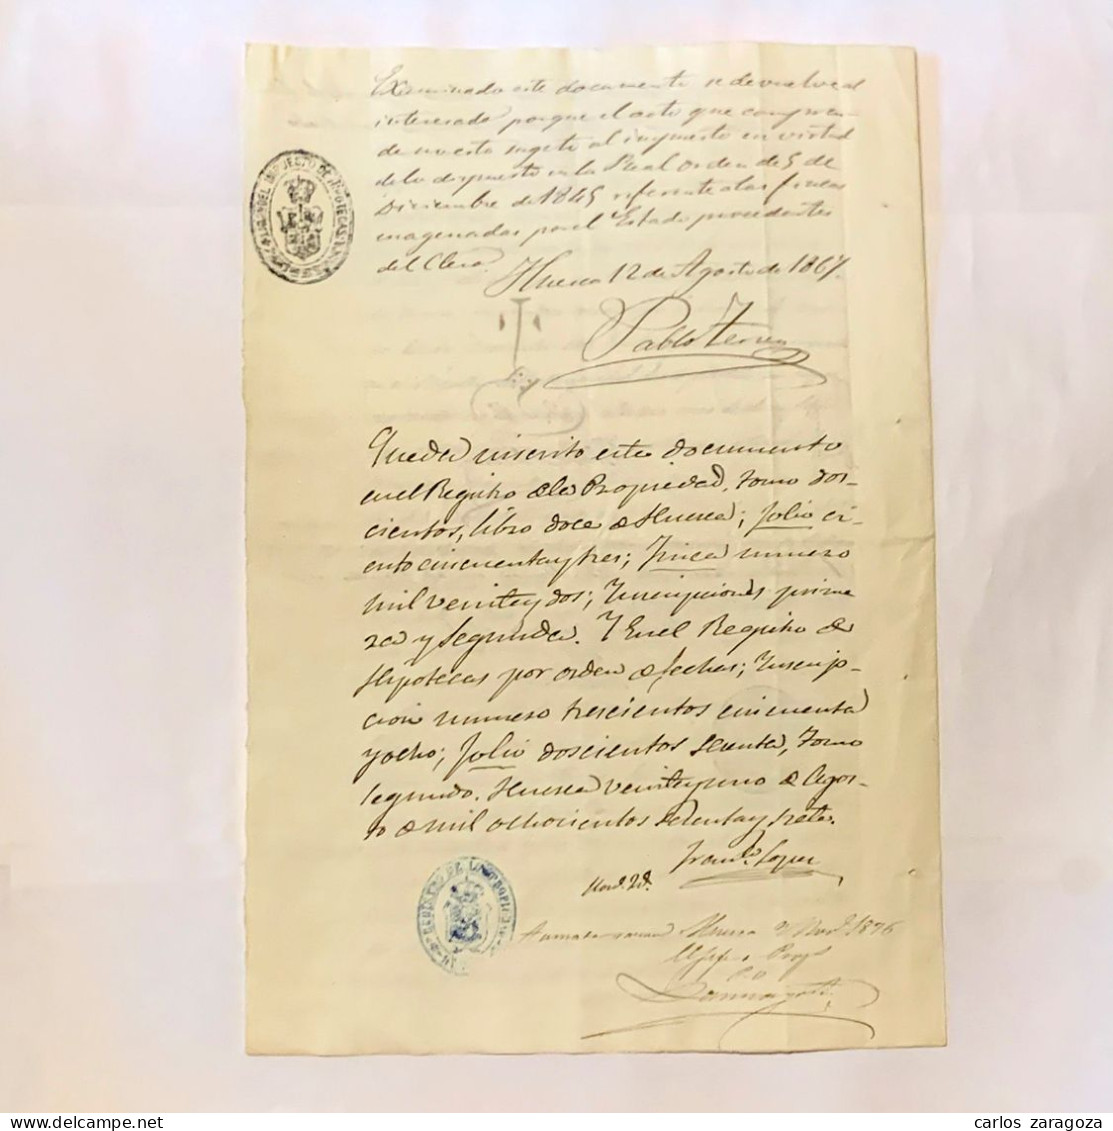 Examinado este documento se devuelve al
interesado porque el acto que compren-
de no esta sugeto al impuesto en virtud
de lo dispuesto en la Real orden de 5 de
Diciembre de 1845 referente a las fincas
enagenadas por el Estado procedentes
del Clero.
Huesca 12 de Agosto de 1867.
Pablo
Queda inscrito este documento
en el Registro de la Propiedad, tomo dos-
cientos, libro doce de Huesca; folio ci-
ento cincuenta y tres; Finca numero
mil veinte y dos; Inscripciones prime
ra y segunda. Y en el Registro de
Hipotecas por orden de fechas; Inscrip-
cion numero trescientos cincuenta
y ocho; folio doscientos setenta, tomo
segundo. Huesca veintiyuno de Agos-
to de mil ochocientos sesenta y siete.
Franco. Lopez
Huesca 1876
carlos zaragoza